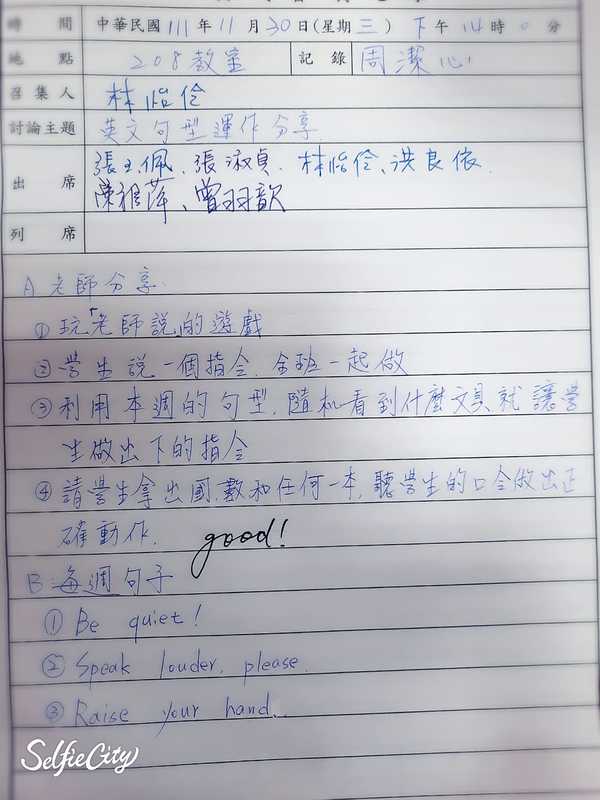 時 間 中華民國111年11月30日(星期三) 下午14時0分
地 點 208教室 記錄 周潔心
召集人 林怡伶
討論主題 英文句型運作分享
出 席 張玉佩、張淑貞、林怡伶、洪良依
陳雅萍、曾羽歆
列 席
A 老師分享
①玩「老師說」的遊戲
②學生說一個指令,全班一起做
③利用本週的句型,隨机看到什麼文具就讓學
生做出下的指令
④請學生拿出國、數和任何一本,聽學生的口令做出正
確動作. good!
B:每週句子
①Be quiet!
②Speak louder, please.
③Raise your hand..
SelfieCity